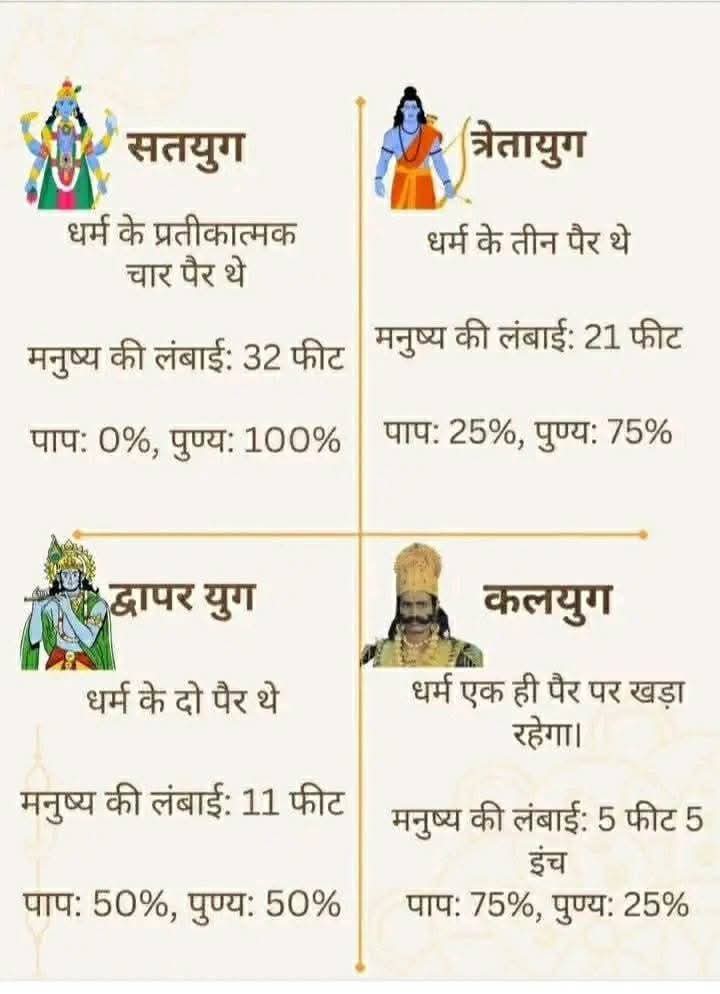 सतयुग
धर्म के प्रतीकात्मक
चार पैर थे
मनुष्य की लंबाई: 32 फीट
पाप: 0%, पुण्य: 100%
त्रेतायुग
धर्म के तीन पैर थे
मनुष्य की लंबाई: 21 फीट
पाप: 25%, पुण्य: 75%
द्वापर युग
धर्म के दो पैर थे
मनुष्य की लंबाई: 11 फीट
पाप: 50%, पुण्य: 50%
कलयुग
धर्म एक ही पैर पर खड़ा
रहेगा।
मनुष्य की लंबाई: 5 फीट 5
इंच
पाप: 75%, पुण्य: 25%